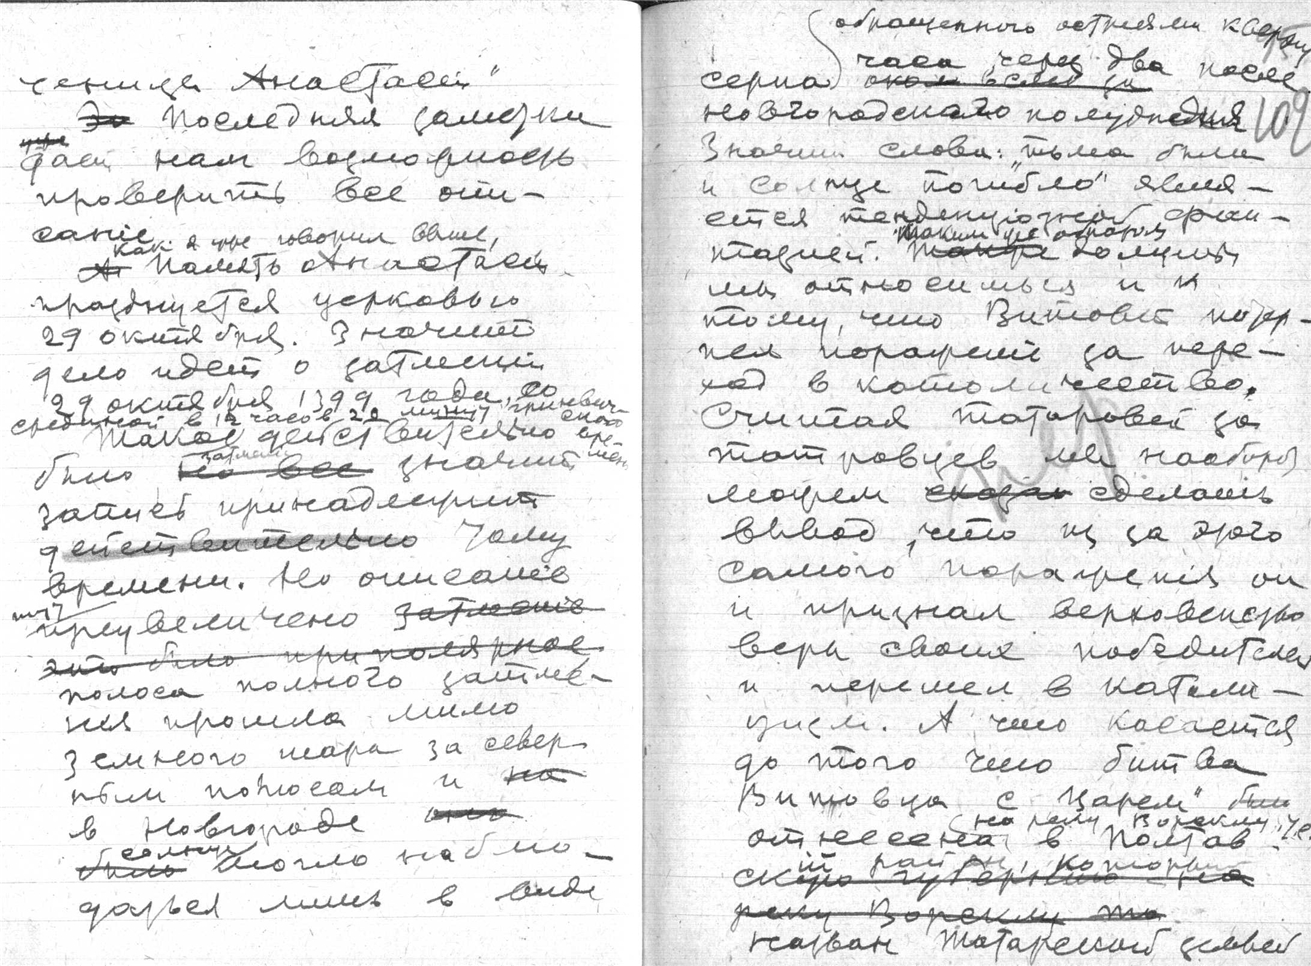 ченицы Анастасеи"
Эта Последняя заметка
уже
дает нам возможность
проверить все опи-
сание
как я уже говорил выше,
А Память Анастасеи
празднуется церковью
29 октября. Значит
дело идет о затмении
29 октября 1399 года, со
срединой в 12 часов 22 минут гриневич-
ского вре-
мени
Такое действительно
было затмение но все значит
запись принадлежит
действительно тому
времени. Но описание
тут
преувеличено затмение
это было приполярное
полоса полного затме-
ния прошла мимо
земного шара за север-
ным полюсом и на
в Новгороде оно
было солнце могло наблю-
даться лишь в виде
обращенного остриями кверху
серпа часа через два после
102
новгородского полудня
Значит слова: „тьма была
и солнце погибло" явля-
ется тенденциозной фан-
тазией. Таким же образом должны
мы относиться и к
тому, что Витовт потер-
пел поражение за пере-
ход в католичество.
Считая татаровей за
татровцев мы наоборот
можем сделать
вывод, что из за этого
самого поражения он
и признал верховенство
веры своих победителей
и перешел в католи-
цизм. А что касается
до того что битва
Витовта с „Царем" была
отнесена на реку Ворсклу
в Полтав-
ский район, который
скую губернию на
реку Ворсклу то
назван Татарской землей